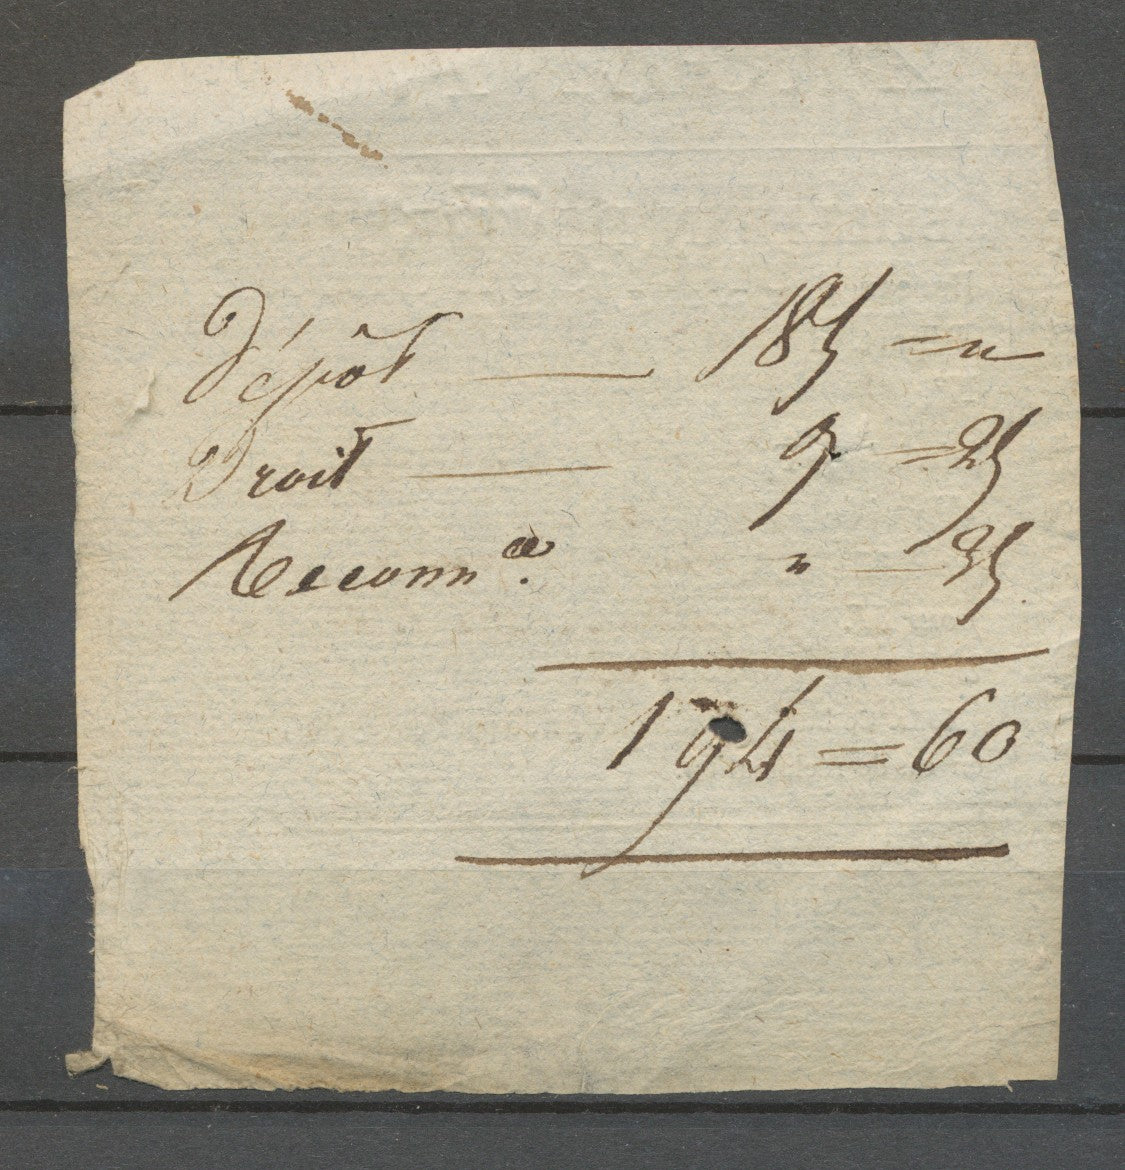 Dépôt — 185 = "
Droit — 9 = 25
Reconn.ce " — 35
194 = 60